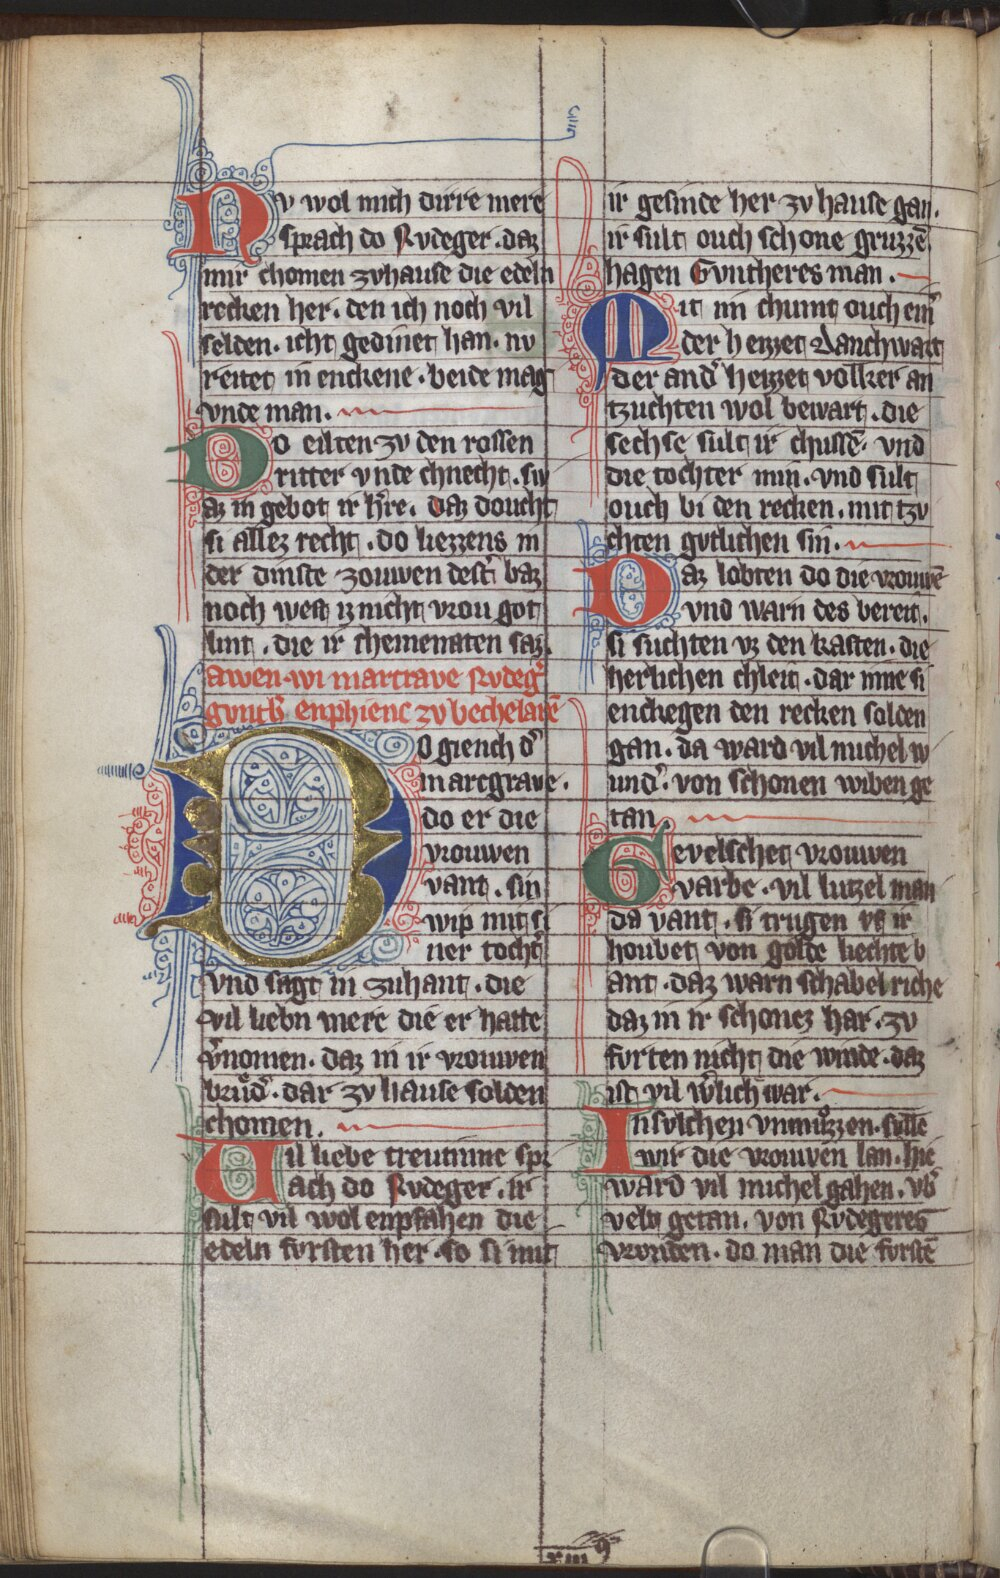 Nv wol mich dirre mere
sprach do Rvdeger. daz
mir chomen zvhause die edeln
recken her. den ich noch vil
selden. icht gedinet han. nv
reitet in enckene. beide mag
vnde man.
Do eilten zv den rossen
ritter vnde chnecht. sw
az in gebot ir h're. daz doucht
si allez recht. do liezzens in
der dinste zouwen dest' baz
noch west iz nicht vrou got
lint. die ir chemenaten saz.
awen. wi marcrave Rvdeg'
gvnth' enphienc zv bechelarē
Do giench d'
marcgrave.
do er die
vrouwen
vant. sin
wip mit si
ner tocht'
vnd sagt in zuhant. die
vil liebn mere die er hatte
v'nomen. daz in ir vrouwen
brud'. dar zv hause solden
chomen.
Uil liebe treutinne spr
ach do Rvdeger. ir
sult vil wol enpfahen die
edeln fvrsten her. so si mit
ir gesinde her zv hause gan.
ir sult ouch schone gruzzē
hagen Gvntheres man.
Mit im chumt ouch ein'
der heizzet danchwart
der and' heizzet volker an
tzuchten wol bewart. die
sechse sult ir chussē. vnd
die tochter min. vnd sult
ouch bi den recken. mit tzv
chten gvtlichen sin.
Daz lobten do die vrouwē
vnd warn des bereit.
si suchten vz den kasten. die
herlichen chleit. dar inne si
enckegen den recken solden
gan. da ward vil michel w
und'. von schonen wiben ge
tan.
Gevelschet vrouwen
varbe. vil lutzel man
da vant. si trugen vf ir
houbet von golde liechte b
ant. daz warn schabel riche
daz in ir schonez har. zv
fvrten nicht die winde. daz
ist vil w'lich war.
In svlchen vnmuzzen. sulle
wir die vrouwen lan. hie
ward vil michel gahen. vb'
velt getan. von Rvdegeres
vronden. do man die fvrstē
xiii 9